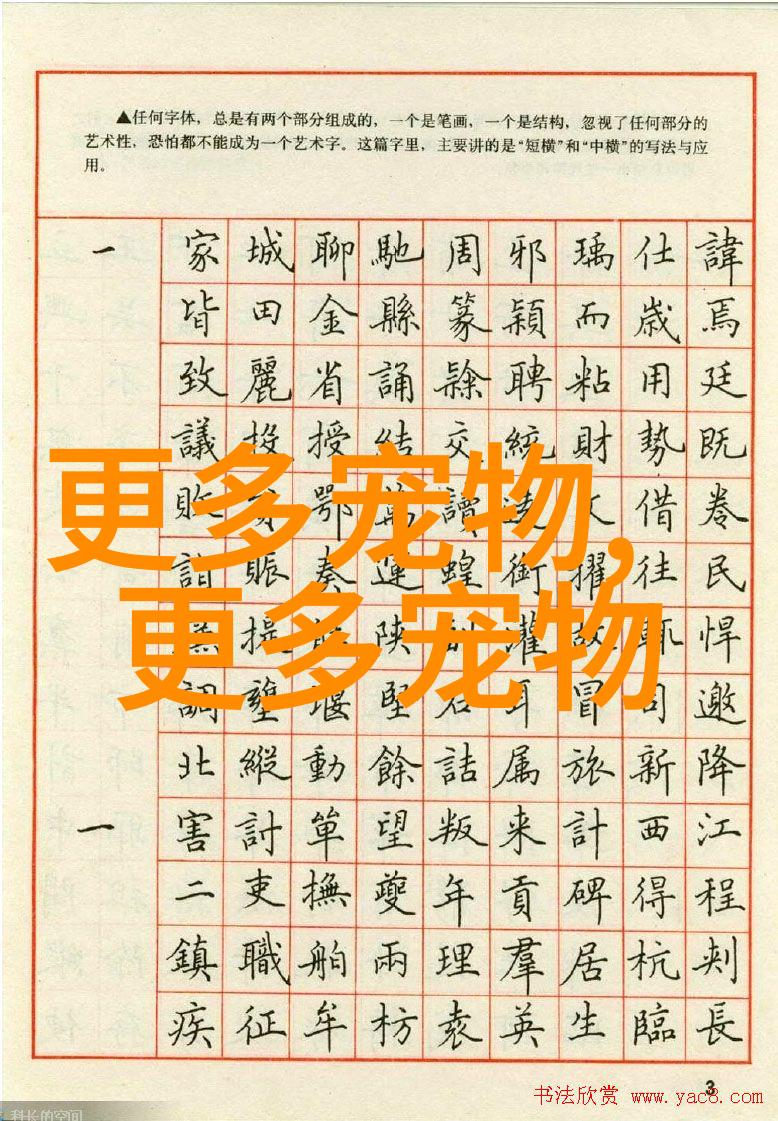 ▲任何字体，总是有两个部分组成的，一个是笔画，一个是结构，忽视了任何部分的
艺术性，恐怕都不能成为一个艺术字。这篇字里，主要讲的是“短横”和“中横”的写法与应
用。
一 家 城 聊 馳 周 邪 瑀 仕 諱
皆 田 金 縣 篆 穎 而 歲 焉
致 麗 省 誦 聘 粘 用 廷
議 投 授 結 交 統 財 勢 既
敗 鄂 萬 讀 借 卷
詣 賑 奏 運 蝗 銜 擢 往 民
提 陝 灌 故 悍
調 堰 堅 石 耳 冒 司 邀
北 縱 動 餘 詰 属 旅 新 降
一 害 討 單 望 叛 来 計 西 江
二 吏 撫 夔 年 貢 碑 得 程
鎮 職 舶 兩 理 羣 居 杭 刺
疾 征 牟 枋 袁 英 生 臨 長
更多宠物，
更多宠物
3
书法欣赏 www.yac8.com
科长的空间